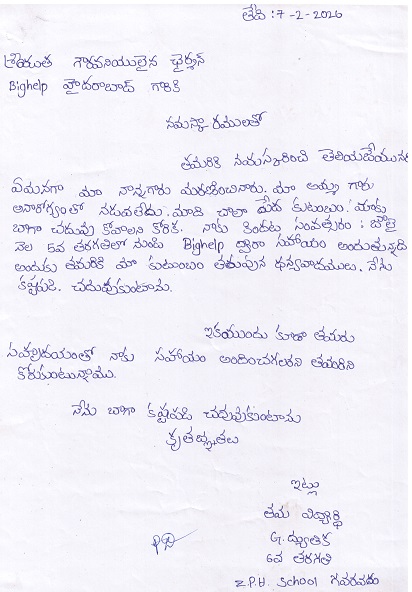 తేది : 7-2-2026
శ్రీయుత గౌరవనీయులైన ఛైర్మన్
Bighelp హైదరాబాద్ గారికి
నమస్కారములతో
తమరికి నమస్కరించి తెలియజేయున
ఏమనగా మా నాన్నగారు మరణించినారు. మా అమ్మ గారు
అనారోగ్యంతో నడువలేదు. మాది చాలా పేద కుటుంబం. మాకు
బాగా చదువు కోవాలని కోరిక. నాకు కిందటి సంవత్సరం : జూలై
నెల 5వ తరగతిలో నుండి Bighelp ద్వారా సహాయం అందుతున్నది
అందుకు తమరికి మా కుటుంబం తరుపున ధన్యవాదములు. నేను
కష్టపడి. చదువుకుంటాను.
ఇకయుందు కూడా తమరు
సహృదయంతో నాకు సహాయం అందించగలరని తమరిని
కోరుకుంటున్నాము.
నేను బాగా కష్టపడి చదువుకుంటాను
కృతజ్ఞతలు
ఇట్లు
తమ విద్యార్థి
G. ద్యుతిక
6వ తరగతి
Z.P.H. School గవరవరం